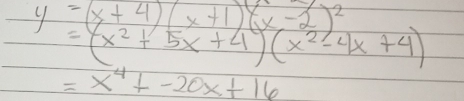 y = (x + 4)(x + 1)(x - 2)²
= (x² + 5x + 4)(x² - 4x + 4)
= x⁴ + -20x + 16